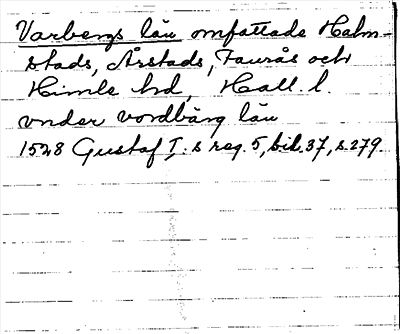 Varbergs län omfattade Halm-
stads, Årstads, Faurås och
Himle hrd, Hall. l.
vnder vordbärg län
1528 Gustaf I:s reg. 5, bil. 37, s. 279